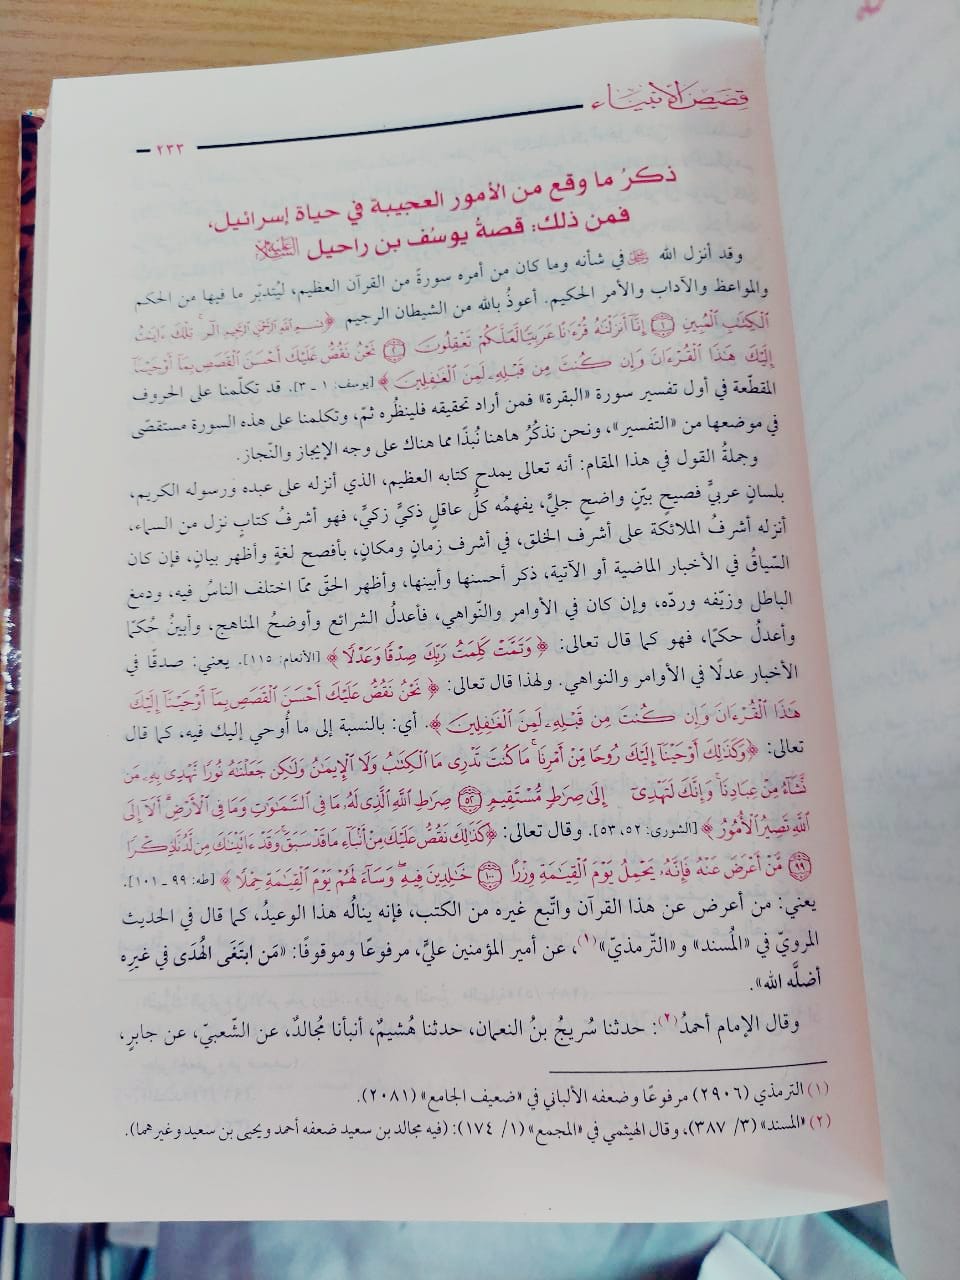 قصص الأنبياء
٢٣٣
ذكرُ ما وقع من الأمور العجيبة في حياة إسرائيل،
فمن ذلك: قصةُ يوسُف بن راحيل عليه السلام
وقد أنزل الله ﷻ في شأنه وما كان من أمره سورةً من القرآن العظيم، ليُتدبّر ما فيها من الحكم
والمواعظ والآداب والأمر الحكيم. أعوذُ بالله من الشيطان الرجيم ﴿بِسْمِ اللَّهِ الرَّحْمَنِ الرَّحِيمِ الٓر ۚ تِلْكَ ءَايَٰتُ
الْكِتَٰبِ الْمُبِينِ ۝١ إِنَّآ أَنزَلْنَٰهُ قُرْءَٰنًا عَرَبِيًّا لَّعَلَّكُمْ تَعْقِلُونَ ۝٢ نَحْنُ نَقُصُّ عَلَيْكَ أَحْسَنَ الْقَصَصِ بِمَآ أَوْحَيْنَآ
إِلَيْكَ هَٰذَا الْقُرْءَانَ وَإِن كُنتَ مِن قَبْلِهِۦ لَمِنَ الْغَٰفِلِينَ﴾ [يوسف: ١ ـ ٣]. قد تكلّمنا على الحروف
المقطّعة في أول تفسير سورة «البقرة» فمن أراد تحقيقه فلينظُره ثمّ، وتكلمنا على هذه السورة مستقصًى
في موضعها من «التفسير»، ونحن نذكُرُ هاهنا نُبذًا مما هناك على وجه الإيجاز والنّجاز.
وجملةُ القول في هذا المقام: أنه تعالى يمدح كتابه العظيم، الذي أنزله على عبده ورسوله الكريم،
بلسانٍ عربيٍّ فصيحٍ بيّنٍ واضحٍ جليٍّ، يفهمُه كلُّ عاقلٍ ذكيٍّ زكيٍّ، فهو أشرفُ كتابٍ نزل من السماء،
أنزله أشرفُ الملائكة على أشرف الخلق، في أشرف زمانٍ ومكانٍ، بأفصح لغةٍ وأظهر بيانٍ، فإن كان
السّياقُ في الأخبار الماضية أو الآتية، ذكر أحسنها وأبينها، وأظهر الحقّ ممّا اختلف الناسُ فيه، ودمغ
الباطل وزيّفه وردّه، وإن كان في الأوامر والنّواهي، فأعدلُ الشرائع وأوضحُ المناهج، وأبينُ حُكمًا
وأعدلُ حكمًا، فهو كما قال تعالى: ﴿وَتَمَّتْ كَلِمَتُ رَبِّكَ صِدْقًا وَعَدْلًا﴾ [الأنعام: ١١٥]. يعني: صدقًا في
الأخبار عدلًا في الأوامر والنواهي. ولهذا قال تعالى: ﴿نَحْنُ نَقُصُّ عَلَيْكَ أَحْسَنَ الْقَصَصِ بِمَآ أَوْحَيْنَآ إِلَيْكَ
هَٰذَا الْقُرْءَانَ وَإِن كُنتَ مِن قَبْلِهِۦ لَمِنَ الْغَٰفِلِينَ﴾. أي: بالنسبة إلى ما أُوحي إليك فيه، كما قال
تعالى: ﴿وَكَذَٰلِكَ أَوْحَيْنَآ إِلَيْكَ رُوحًا مِّنْ أَمْرِنَا ۚ مَا كُنتَ تَدْرِى مَا الْكِتَٰبُ وَلَا الْإِيمَٰنُ وَلَٰكِن جَعَلْنَٰهُ نُورًا نَّهْدِى بِهِۦ مَن
نَّشَآءُ مِنْ عِبَادِنَا ۚ وَإِنَّكَ لَتَهْدِىٓ إِلَىٰ صِرَٰطٍ مُّسْتَقِيمٍ ۝٥٢ صِرَٰطِ اللَّهِ الَّذِى لَهُۥ مَا فِى السَّمَٰوَٰتِ وَمَا فِى الْأَرْضِ ۗ أَلَآ إِلَى
اللَّهِ تَصِيرُ الْأُمُورُ﴾ [الشورى: ٥٢، ٥٣]. وقال تعالى: ﴿كَذَٰلِكَ نَقُصُّ عَلَيْكَ مِنْ أَنۢبَآءِ مَا قَدْ سَبَقَ ۚ وَقَدْ ءَاتَيْنَٰكَ مِن لَّدُنَّا ذِكْرًا
۝٩٩ مَّنْ أَعْرَضَ عَنْهُ فَإِنَّهُۥ يَحْمِلُ يَوْمَ الْقِيَٰمَةِ وِزْرًا ۝١٠٠ خَٰلِدِينَ فِيهِ ۖ وَسَآءَ لَهُمْ يَوْمَ الْقِيَٰمَةِ حِمْلًا﴾ [طه: ٩٩ ـ ١٠١].
يعني: من أعرض عن هذا القرآن واتّبع غيره من الكتب، فإنه ينالُه هذا الوعيدُ، كما قال في الحديث
المرويّ في «المُسند» و«التّرمذيّ»(١)، عن أمير المؤمنين عليٍّ، مرفوعًا وموقوفًا: «مَن ابتَغَى الهُدَى في غيرِه
أضلَّه الله».
وقال الإمام أحمدُ(٢): حدثنا سُريجُ بنُ النعمان، حدثنا هُشيمٌ، أنبأنا مُجالدٌ، عن الشّعبيّ، عن جابرٍ،
(١) الترمذي (٢٩٠٦) مرفوعًا وضعفه الألباني في «ضعيف الجامع» (٢٠٨١).
(٢) «المسند» (٣/ ٣٨٧)، وقال الهيثمي في «المجمع» (١/ ١٧٤): (فيه مجالد بن سعيد ضعفه أحمد ويحيى بن سعيد وغيرهما).